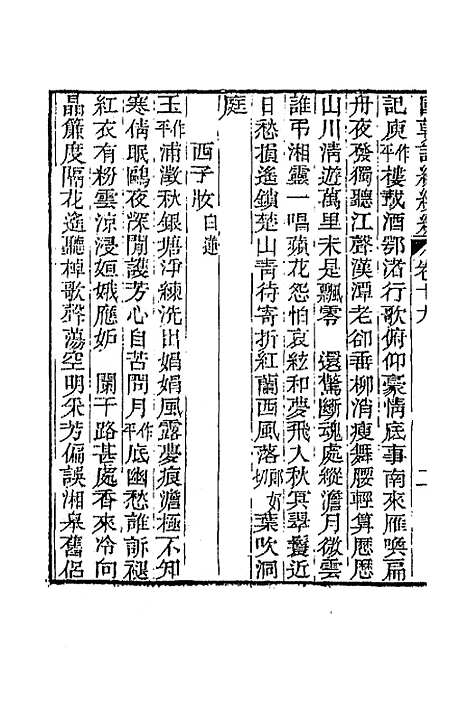 國朝詞綜續編 卷十九 二
記庾作平樓載酒鄂渚行歌俯仰豪情底事南來雁喚扁
舟夜發獨聽江聲漢潭老卻垂柳消瘦舞腰輕算歷歷
山川清遊萬里未是飄零　還驚斷魂處縱澹月微雲
誰弔湘靈一唱蘋花怨怕哀絃和夢飛入秋冥翠鬟近
日愁損遙鎖楚山青待寄折紅蘭西風落葉吹洞
庭
西子妝白蓮
玉作平浦澂秋銀塘淨練洗出娟娟風露夢痕澹極不知
寒倩眠鷗夜深閒護芳心自苦問月作平底幽愁誰訴褪
紅衣有粉雲涼浸姮娥應妒　闌干路甚處香來冷向
晶簾度隔花遙聽棹歌聲蕩空明采芳偏誤湘皋舊侶